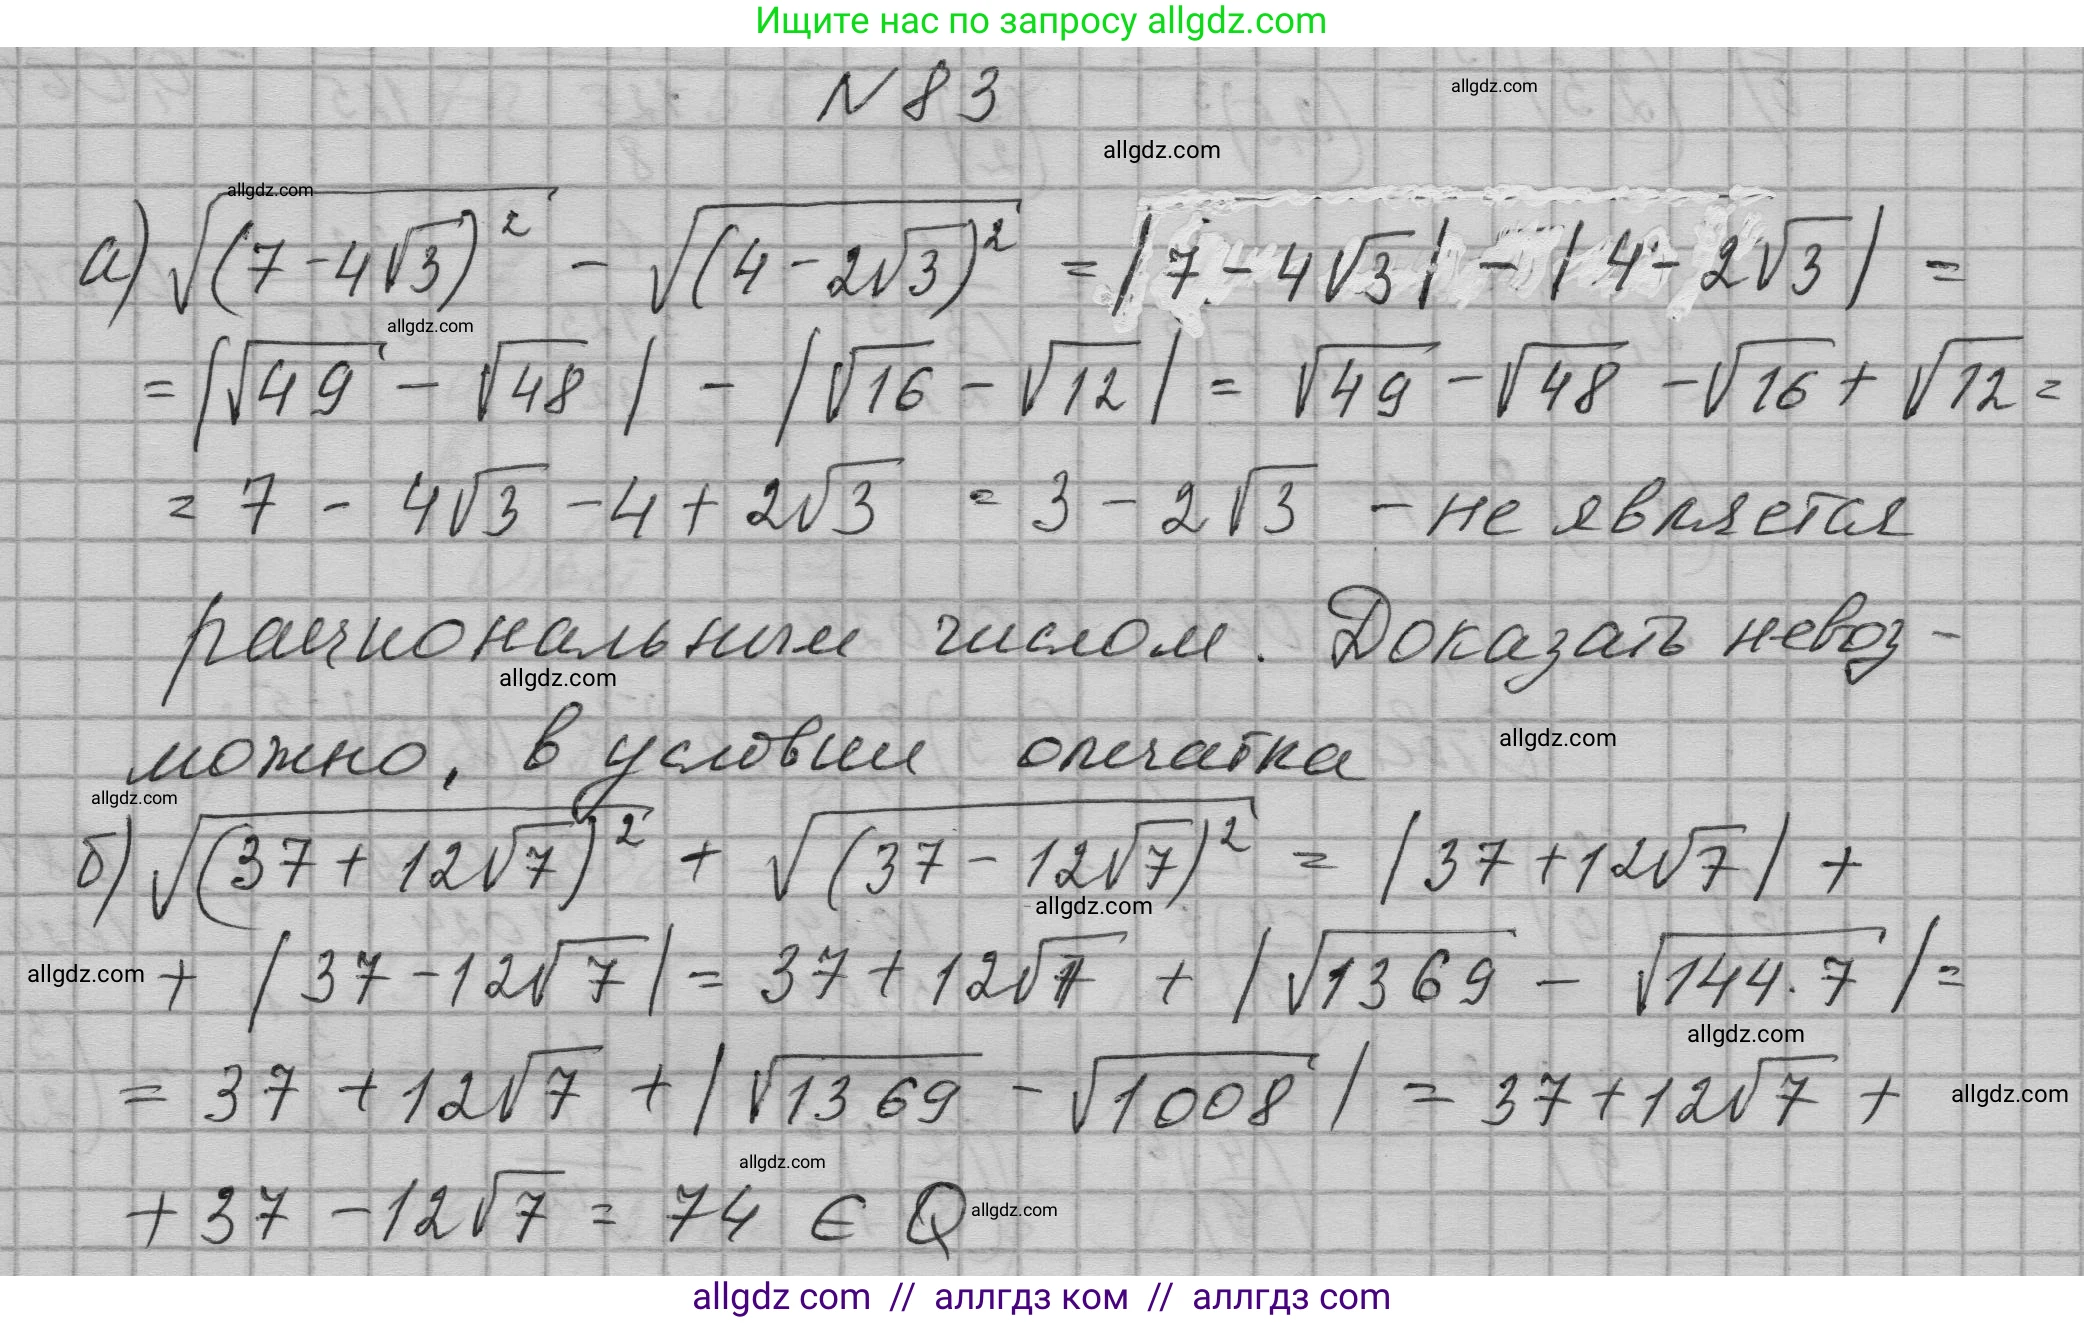 Ищите нас по запросу allgdz.com
N 83
allgdz.com
allgdz.com
allgdz.com
а) √(7-4√3)² - √(4-2√3)² = |7-4√3| - |4-2√3| =
allgdz.com
= |√49 - √48| - |√16 - √12| = √49 - √48 - √16 + √12 =
= 7 - 4√3 - 4 + 2√3 = 3 - 2√3 - не является
рациональным числом. Доказать невоз-
allgdz.com
можно, в условии опечатка
allgdz.com
allgdz.com
б) √(37+12√7)² + √(37-12√7)² = |37+12√7| +
allgdz.com
allgdz.com + |37-12√7| = 37+12√7 + |√1369 - √144·7| =
allgdz.com
= 37+12√7 + |√1369 - √1008| = 37+12√7 + allgdz.com
allgdz.com
+ 37 - 12√7 = 74 ∈ Q allgdz.com
allgdz com // аллгдз ком // аллгдз com